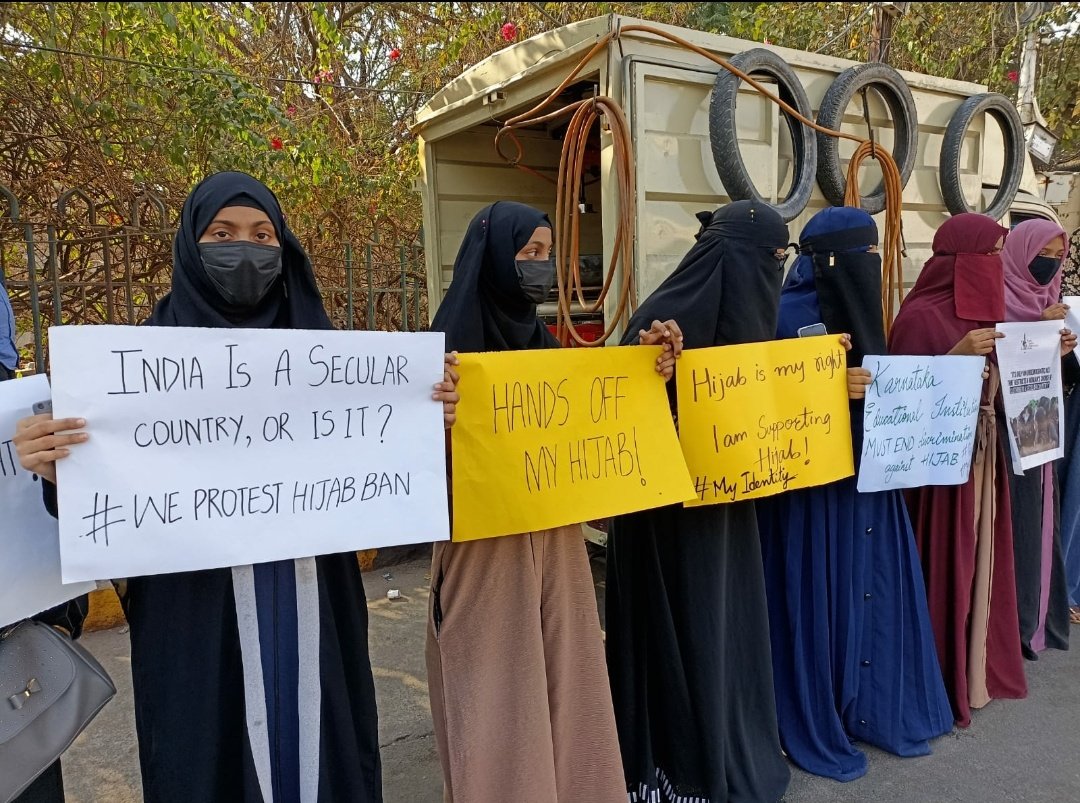 INDIA IS A SECULAR
COUNTRY, OR IS IT?
# WE PROTEST HIJAB BAN
HANDS OFF
MY HIJAB!
Hijab is my right
I am Supporting
Hijab!
# My Identity
Karnataka
Educational
MUST END discrimination
against HIJAB